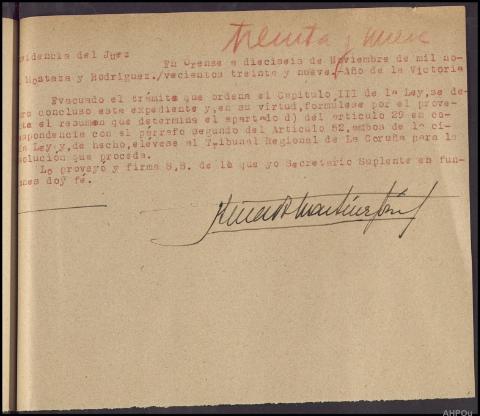 treinta y nueve
idencia del Juez
En Orense a dieciseis de Noviembre de mil no-
Mostaza y Rodriguez./vecientos treinta y nueve.-/Año de la Victoria
Evacuado el trámite que ordena el Capitulo III de la Ley,se de-
ro concluso este expediente y,en su virtud,fórmulese por el prove-
ta el resumen que determina el apartado d) del articulo 29 en co-
spondencia con el párrafo segundo del Articulo 52,ambos de la ci-
a Ley y,de hecho,elévese al Tribunal Regional de La Coruña para la
solución que proceda.
Lo proveyo y firma S.S. de la que yo Secretario Suplente en fun-
nes doy fé.
AHPOu